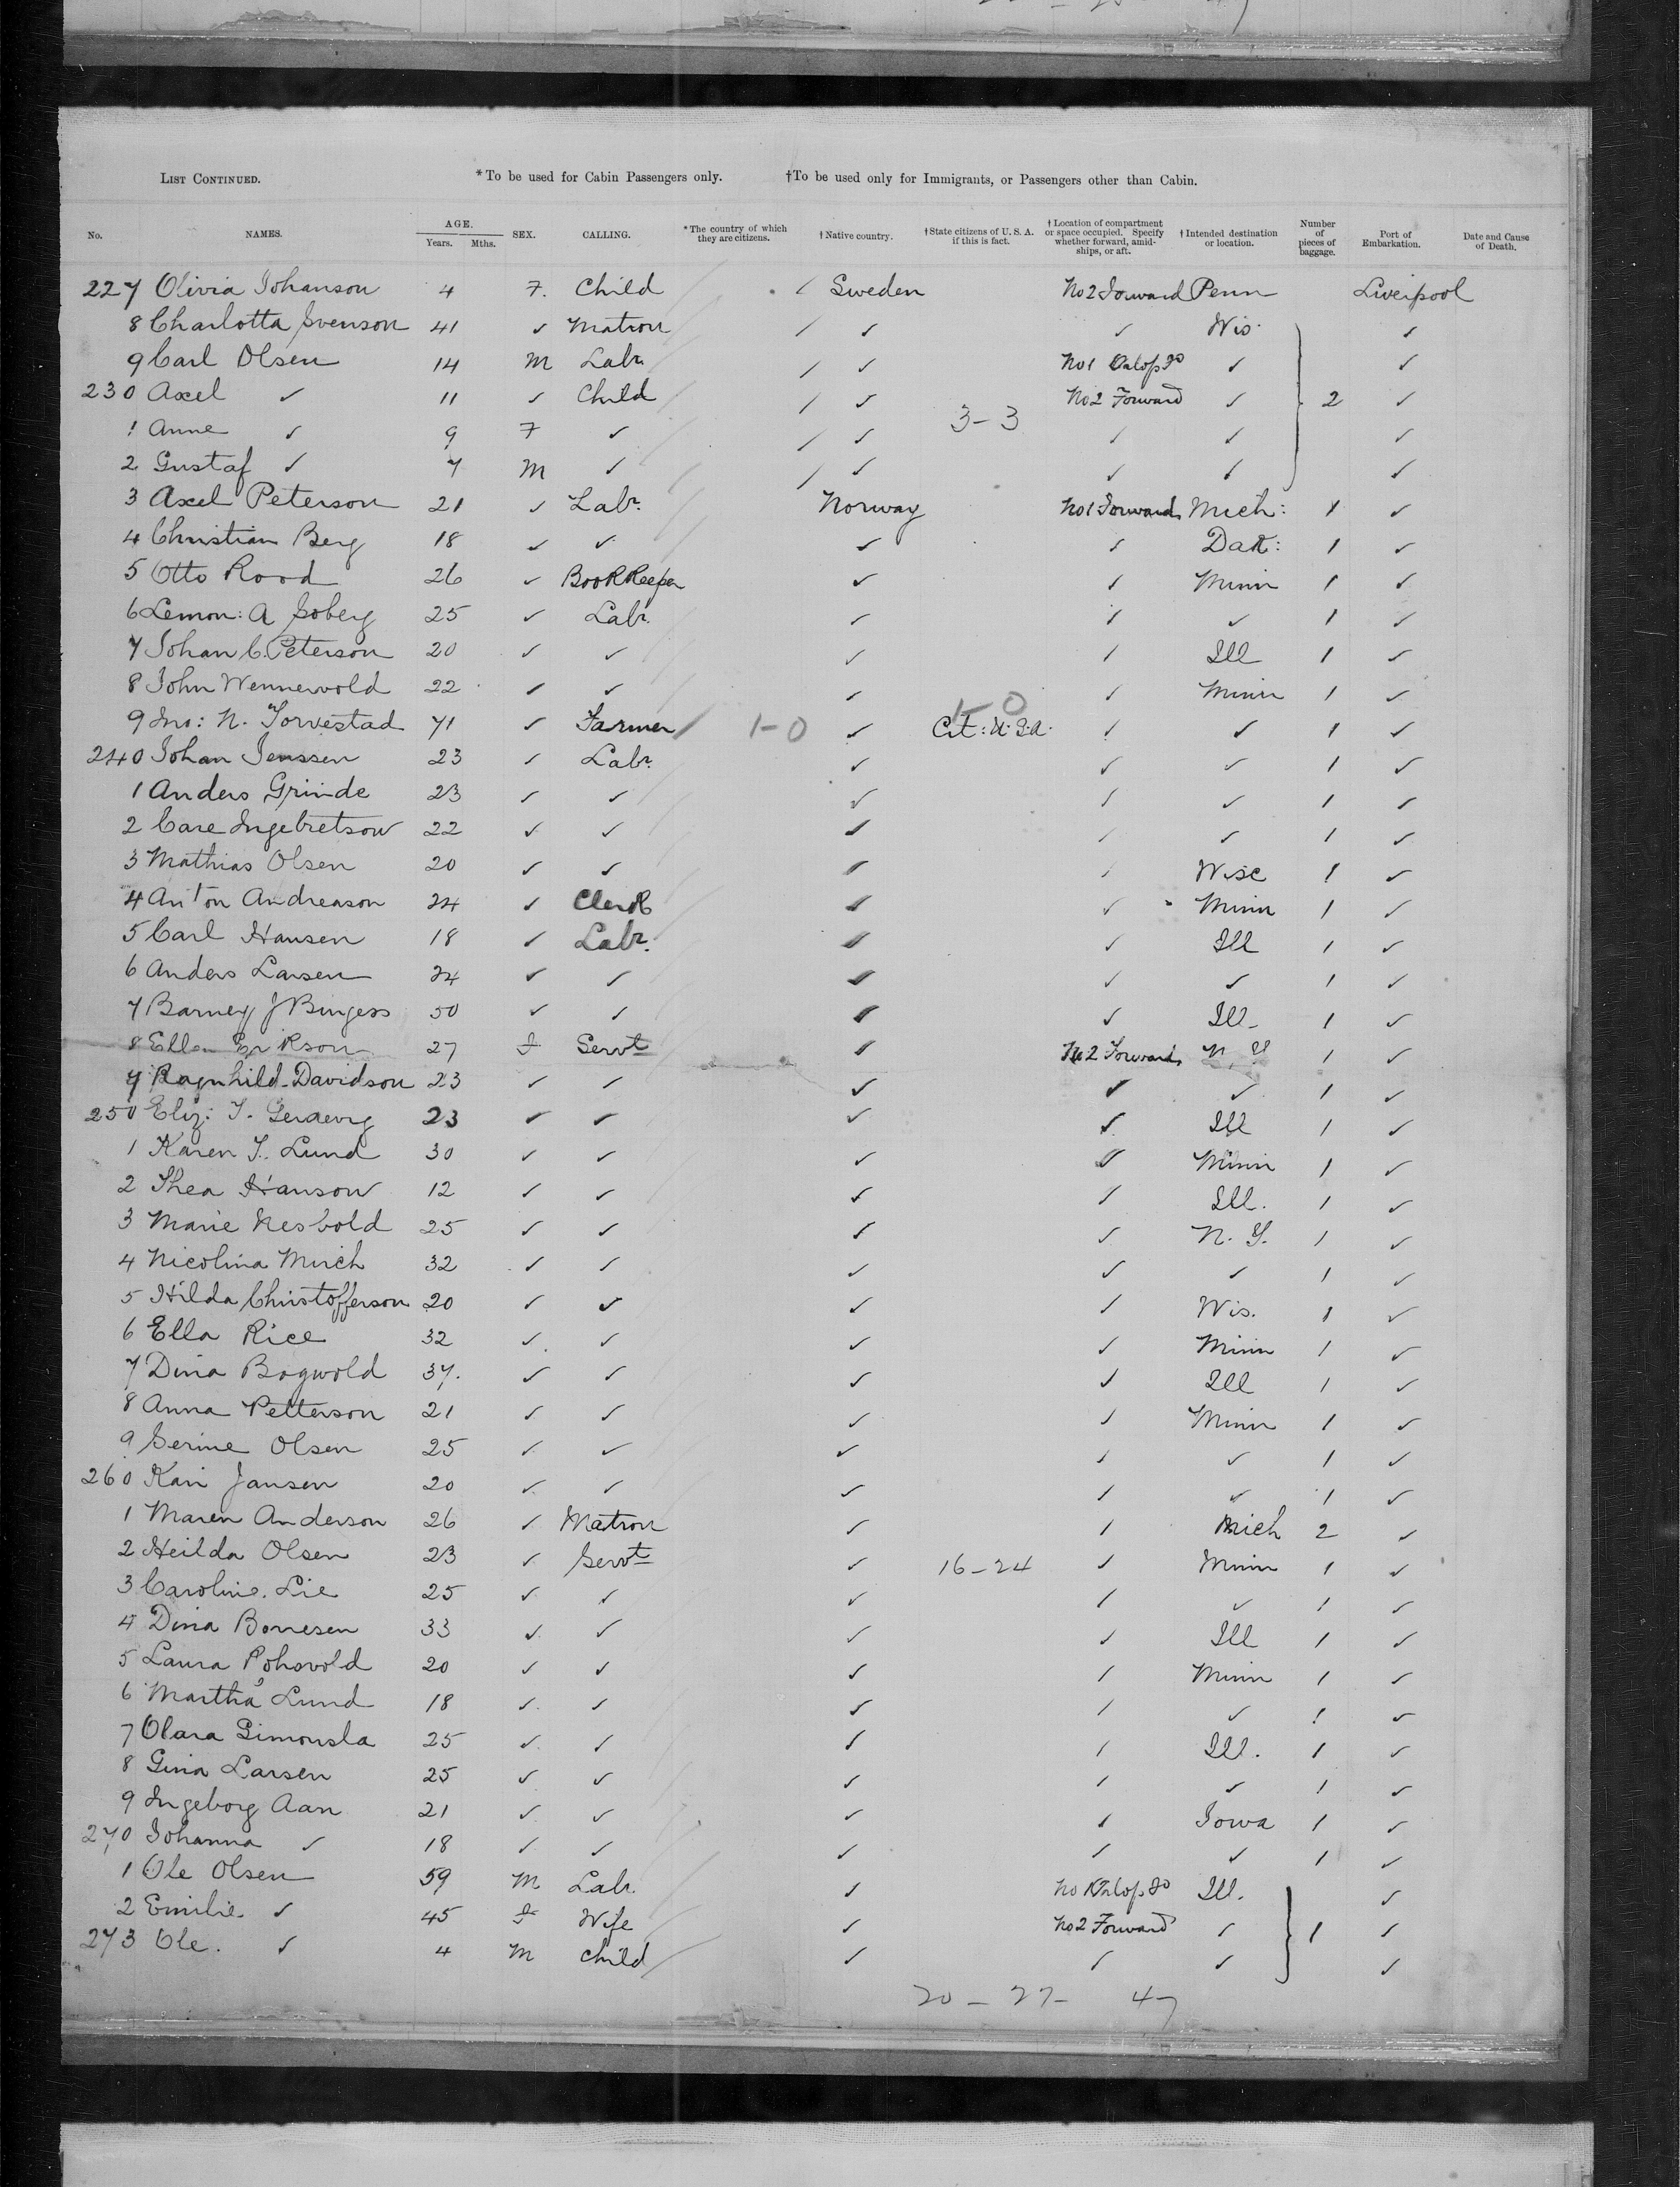 LIST CONTINUED. *To be used for Cabin Passengers only. †To be used only for Immigrants, or Passengers other than Cabin.
No. NAMES. AGE. Years. Mths. SEX. CALLING. *The country of which they are citizens. †Native country. †State citizens of U. S. A. if this is fact. †Location of compartment or space occupied. Specify whether forward, amidships, or aft. †Intended destination or location. Number of pieces of baggage. Port of Embarkation. Date and Cause of Death.
227 Olivia Johanson 4 F. Child / Sweden No 2 Forward Penn Liverpool
8 Charlotta Svenson 41 ✓ Matron / ✓ ✓ Wis. ✓
9 Carl Olsen 14 M Labr / ✓ No 1 ✓ ✓
230 Axel ✓ 11 ✓ Child / ✓ No 2 Forward ✓ 2 ✓
3-3
1 Anne ✓ 9 F ✓ / ✓ ✓ ✓ ✓
2 Gustaf ✓ 7 M ✓ / ✓ ✓ ✓ ✓
3 Axel Peterson 21 ✓ Labr. Norway No 1 Forward Mich: 1 ✓
4 Christian Berg 18 ✓ ✓ ✓ ✓ Dak: 1 ✓
5 Otto Rood 26 ✓ Bookkeeper ✓ ✓ Minn 1 ✓
6 Lemon: A Soberg 25 ✓ Labr. ✓ ✓ ✓ 1 ✓
7 Johan C. Peterson 20 ✓ ✓ ✓ ✓ Ill 1 ✓
8 John Wennewold 22 ✓ ✓ ✓ ✓ Minn 1 ✓
1-0
9 Jno: N. Torvestad 71 ✓ Farmer 1-0 ✓ Cit: U.S.A. ✓ ✓ 1 ✓
240 Johan Jenssen 23 ✓ Labr. ✓ ✓ ✓ 1 ✓
1 Anders Grinde 23 ✓ ✓ ✓ ✓ ✓ 1 ✓
2 Care Ingebretson 22 ✓ ✓ ✓ ✓ ✓ 1 ✓
3 Mathias Olsen 20 ✓ ✓ ✓ ✓ Wisc 1 ✓
4 Anton Andreason 24 ✓ Clerk ✓ ✓ Minn 1 ✓
5 Carl Hansen 18 ✓ Labr. ✓ ✓ Ill 1 ✓
6 Anders Larsen 24 ✓ ✓ ✓ ✓ ✓ 1 ✓
7 Barney J Burgess 50 ✓ ✓ ✓ ✓ Ill 1 ✓
8 Ellen Erikson 27 F Servt ✓ No 2 Forward N. Y 1 ✓
9 Ragnhild Davidson 23 ✓ ✓ ✓ ✓ ✓ 1 ✓
250 Eliz: T. 23 ✓ ✓ ✓ ✓ Ill 1 ✓
1 Karen T. Lund 30 ✓ ✓ ✓ ✓ Minn 1 ✓
2 Thea Hanson 12 ✓ ✓ ✓ ✓ Ill. 1 ✓
3 Marie Nesbold 25 ✓ ✓ ✓ ✓ N. Y. 1 ✓
4 Nicolina Murch 32 ✓ ✓ ✓ ✓ ✓ 1 ✓
5 Hilda Christofferson 20 ✓ ✓ ✓ ✓ Wis. 1 ✓
6 Ella Rice 32 ✓ ✓ ✓ ✓ Minn 1 ✓
7 Dina Bogwold 37. ✓ ✓ ✓ ✓ Ill 1 ✓
8 Anna Petterson 21 ✓ ✓ ✓ ✓ Minn 1 ✓
9 Serine Olsen 25 ✓ ✓ ✓ ✓ ✓ 1 ✓
260 Kari Jansen 20 ✓ ✓ ✓ ✓ ✓ 1 ✓
1 Maren Anderson 26 ✓ Matron ✓ ✓ Mich 2 ✓
2 Heilda Olsen 23 ✓ Servt ✓ 16-24 ✓ Minn 1 ✓
3 Caroline Lie 25 ✓ ✓ ✓ ✓ ✓ 1 ✓
4 Dina Bornesen 33 ✓ ✓ ✓ ✓ Ill 1 ✓
5 Laura Rohovold 20 ✓ ✓ ✓ ✓ Minn 1 ✓
6 Martha Lund 18 ✓ ✓ ✓ ✓ ✓ 1 ✓
7 Olara Simonsla 25 ✓ ✓ ✓ ✓ Ill. 1 ✓
8 Gina Larsen 25 ✓ ✓ ✓ ✓ ✓ 1 ✓
9 Ingeborg Aan 21 ✓ ✓ ✓ ✓ Iowa 1 ✓
270 Johanna ✓ 18 ✓ ✓ ✓ ✓ ✓ 1 ✓
1 Ole Olsen 59 M Labr ✓ No 1 Ill. ✓
2 Emilie ✓ 45 F Wife ✓ No 2 Forward ✓ 1 ✓
273 Ole. ✓ 4 M Child ✓ ✓ ✓ ✓
20 - 27 - 47